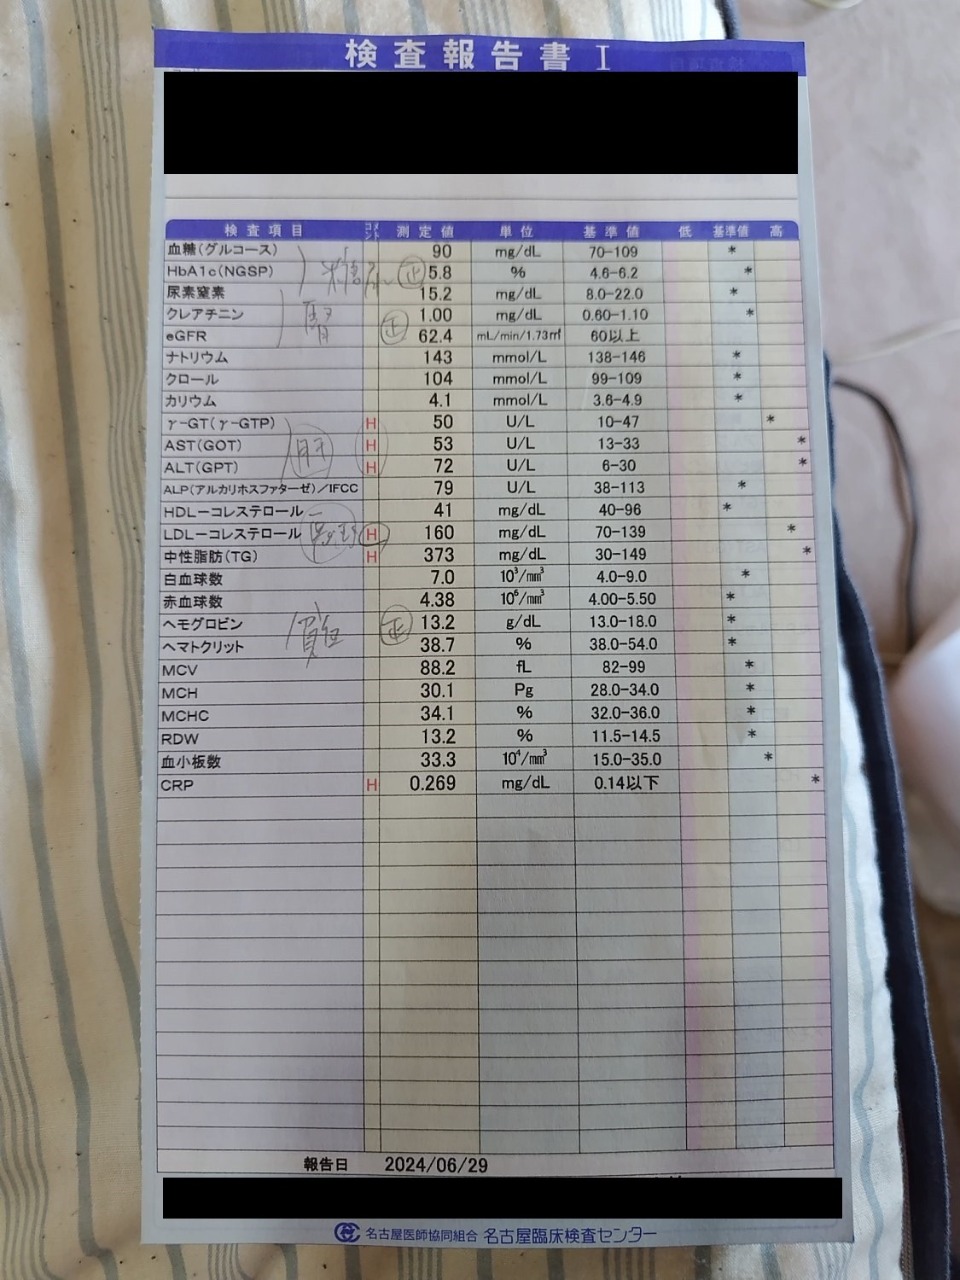 検査報告書 I
検査項目 コメント 測定値 単位 基準値 低 基準値 高
血糖(グルコース) 90 mg/dL 70-109 *
HbA1c(NGSP) 糖尿 正 5.8 % 4.6-6.2 *
尿素窒素 15.2 mg/dL 8.0-22.0 *
クレアチニン 腎 正 1.00 mg/dL 0.60-1.10 *
eGFR 62.4 mL/min/1.73㎡ 60以上
ナトリウム 143 mmol/L 138-146 *
クロール 104 mmol/L 99-109 *
カリウム 4.1 mmol/L 3.6-4.9 *
γ-GT(γ-GTP) H 50 U/L 10-47 *
AST(GOT) 肝 H 53 U/L 13-33 *
ALT(GPT) H 72 U/L 6-30 *
ALP(アルカリホスファターゼ)/IFCC 79 U/L 38-113 *
HDL-コレステロール 41 mg/dL 40-96 *
LDL-コレステロール H 160 mg/dL 70-139 *
中性脂肪(TG) H 373 mg/dL 30-149 *
白血球数 7.0 10³/mm³ 4.0-9.0 *
赤血球数 4.38 10⁶/mm³ 4.00-5.50 *
ヘモグロビン 貧血 正 13.2 g/dL 13.0-18.0 *
ヘマトクリット 38.7 % 38.0-54.0 *
MCV 88.2 fL 82-99 *
MCH 30.1 Pg 28.0-34.0 *
MCHC 34.1 % 32.0-36.0 *
RDW 13.2 % 11.5-14.5 *
血小板数 33.3 10⁴/mm³ 15.0-35.0 *
CRP H 0.269 mg/dL 0.14以下 *
報告日 2024/06/29
名古屋医師協同組合 名古屋臨床検査センター